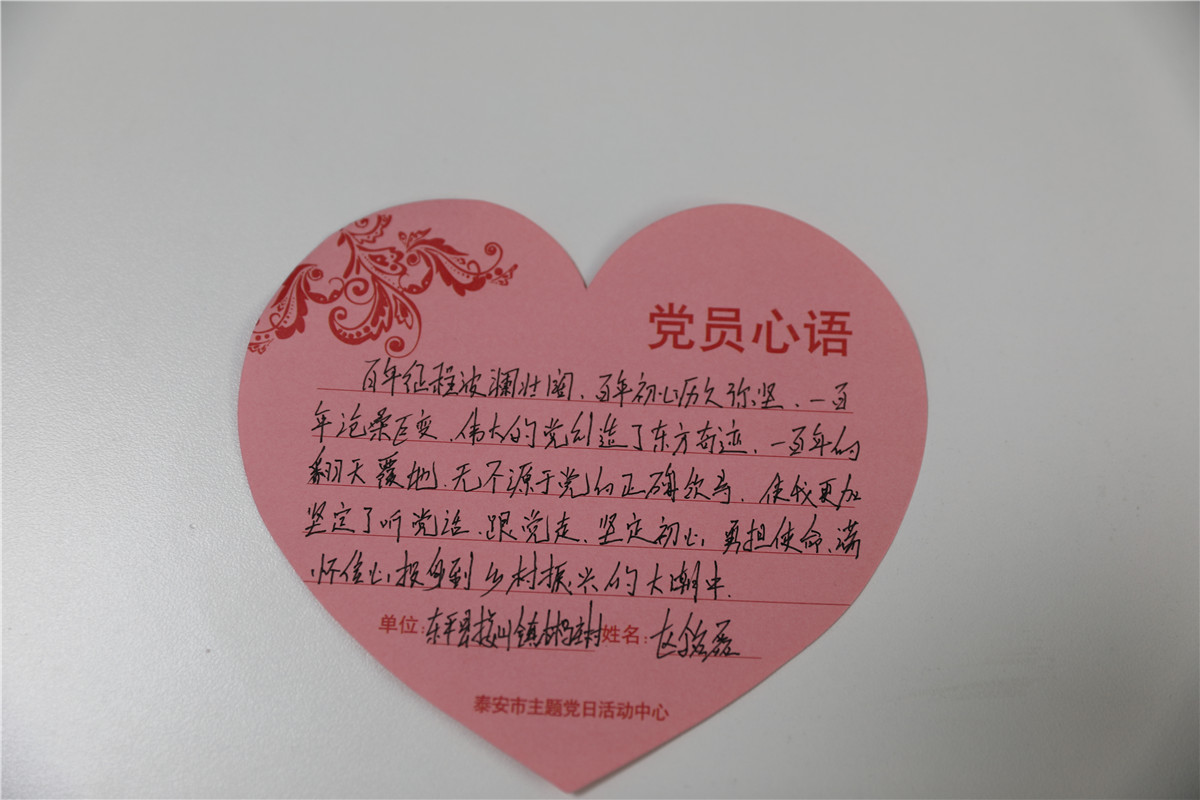 党员心语
百年征程波澜壮阔、百年初心历久弥坚、一百
年沧桑巨变、伟大的党创造了东方奇迹、一百年的
翻天覆地、无不源于党的正确领导、使我更加
坚定了听党话、跟党走、坚定初心、勇担使命、满
怀信心投身到乡村振兴的大潮中.
单位:东平县接山镇村 姓名:赵
泰安市主题党日活动中心